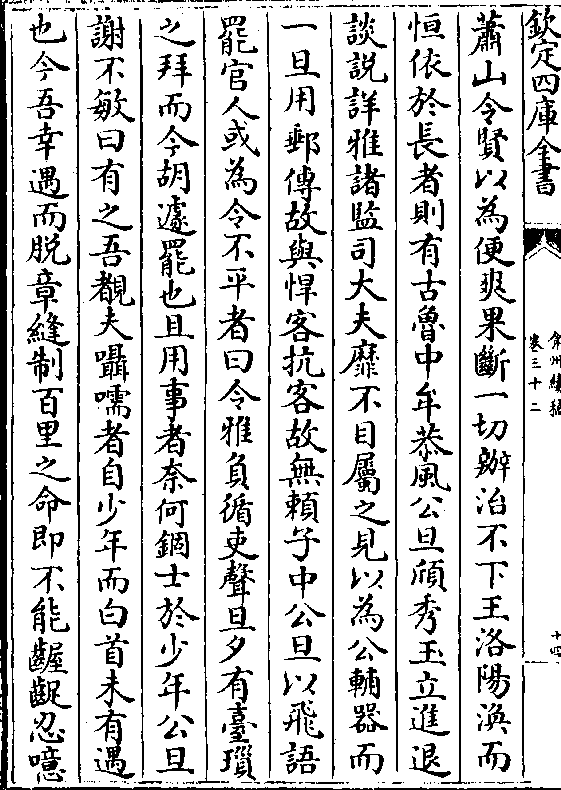 欽定四庫全書
弇州續稿
卷三十二
十四
蕭山令賢以為便爽果斷一切辦治不下王洛陽渙而
恒依於長者則有古魯中牟恭風公旦頎秀玉立進退
談説詳雅諸監司大夫靡不目屬之見以為公輔器而
一旦用郵傳故與悍客抗客故無賴子中公旦以飛語
罷官人或為令不平者曰令雅負循吏聲旦夕有臺瑣
之拜而今胡遽罷也且用事者奈何錮士於少年公旦
謝不敏曰有之吾覩夫囁嚅者自少年而白首未有遇
也今吾幸遇而脱章縫制百里之命即不能齷齪忍噫